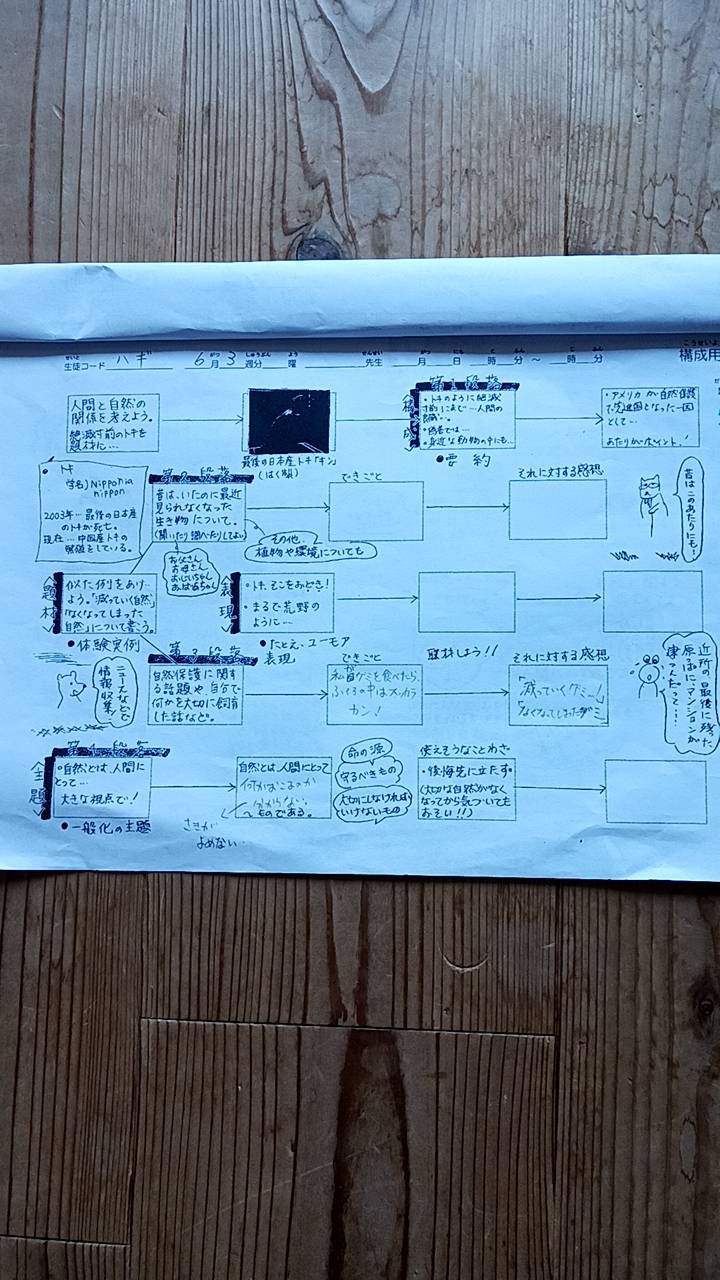 生徒コード ハギ 6月3週分 曜 先生 月 日 時 分 ～ 時 分
構成用
人間と自然の
関係を考えよう。
絶滅寸前のトキを
題材に…
最後の日本産トキ「キン」
(はく製)
第1段落
構成
・トキのように絶滅
寸前にまで…人間の
・偽者では…
・身近な動物の中にも…
●要約
・アメリカが自然保護
で先進国となった一因
として…
あたりがポイント!
トキ
学名) Nipponia
nippon
2003年…最後の日本産
のトキが死亡。
現在…中国産トキの
繁殖をしている。
第2段落
昔は、いたのに最近
見られなくなった
生き物について。
(聞いたり調べたりしてよい)
その他、
植物や環境についても
お父さん
お母さん
おじいちゃん
おばあちゃん
できごと
それに対する感想
昔はこのあたりにも…
題材
似た例をあげ
よう。「減っていく自然」
「なくなってしまった
自然」について書こう。
●体験実例
表現
・トキ、そこをおどき!
・まるで荒野の
ように…
●たとえ、ユーモア
表現
ニュースなどで
情報収集!
第3段落
自然保護に関す
る話題や、自分で
何かを大切に飼育
した話など。
できごと
私習グミを食べたら、
ふくろの中はスッカラ
カン!
取材しよう!!
それに対する感想
「減っていくグミ…」
「なくなってしまったグミ」
近所の最後に残った
原っぱに、マンションが
建つんだって…
第4段落
主題
・自然とは、人間に
とって…
大きな視点で!
●一般化の主題
自然とは、人間にとって
何かはこのか
分からない
ものである。
さきが
よめない
命の源
守るべきもの
大切にしなければ
いけないもの
使えそうなことわざ
・後悔先に立たず
(大切な自然がなく
なってから気づいても
おそい!!)